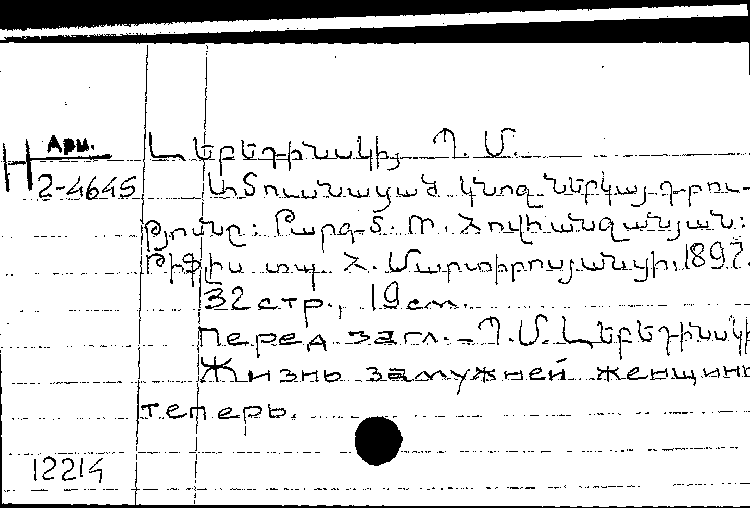 Арм.
Н
2-4645
Լեբեդինսկիյ Պ. Մ.
Ամուսնացած կնոջ ներկայ դրու-
թյունը: Բարգ. Տ. Մ. Հովհաննիսյան:
Թիֆլիս տպ. Հ. Մարտիրոսյանսի, 1892.
32 стр., 19 см.
Перед загл. - Պ. Մ. Լեբեդինսկի
Жизнь замужней женщины
теперь.
12214